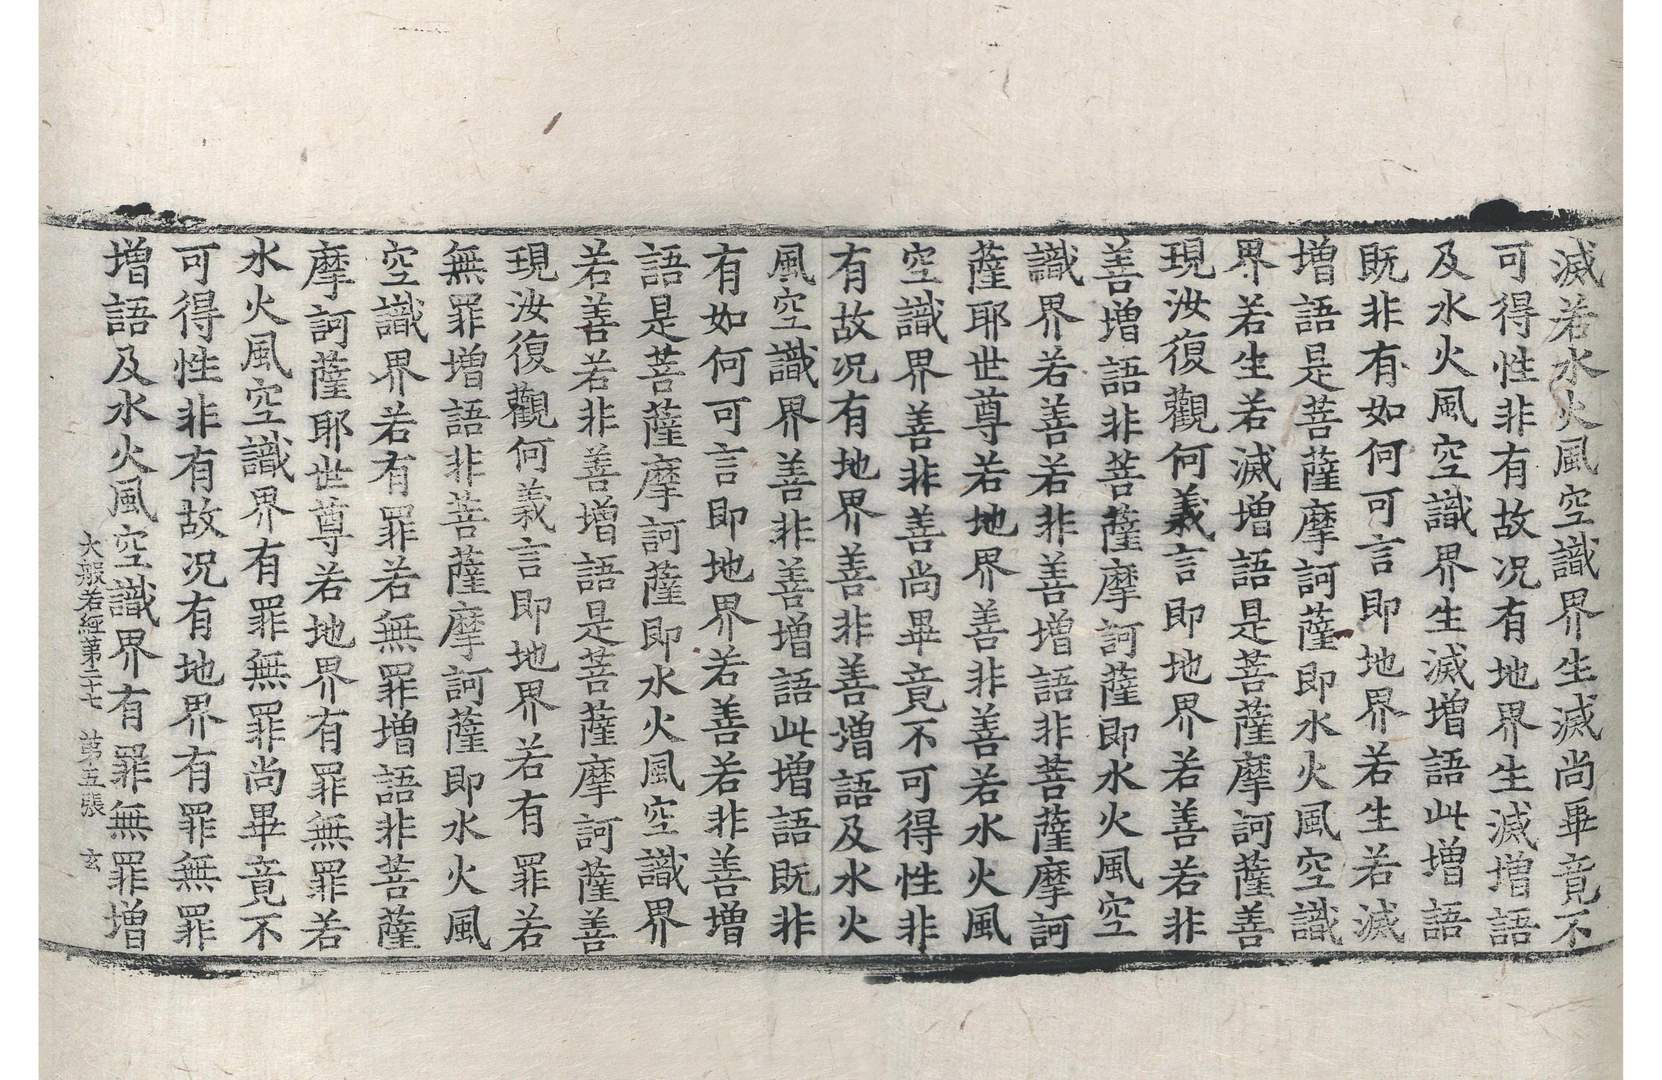 滅若水火風空識界生滅尚畢竟不
可得性非有故况有地界生滅增語
及水火風空識界生滅增語此增語
既非有如何可言即地界若生若滅
增語是菩薩摩訶薩即水火風空識
界若生若滅增語是菩薩摩訶薩善
現汝復觀何義言即地界若善若非
善增語非菩薩摩訶薩即水火風空
識界若善若非善增語非菩薩摩訶
薩耶世尊若地界善非善若水火風
空識界善非善尚畢竟不可得性非
有故况有地界善非善增語及水火
風空識界善非善增語此增語既非
有如何可言即地界若善若非善增
語是菩薩摩訶薩即水火風空識界
若善若非善增語是菩薩摩訶薩善
現汝復觀何義言即地界若有罪若
無罪增語非菩薩摩訶薩即水火風
空識界若有罪若無罪增語非菩薩
摩訶薩耶世尊若地界有罪無罪若
水火風空識界有罪無罪尚畢竟不
可得性非有故况有地界有罪無罪
增語及水火風空識界有罪無罪增
大般若經第三十七 第五張 玄